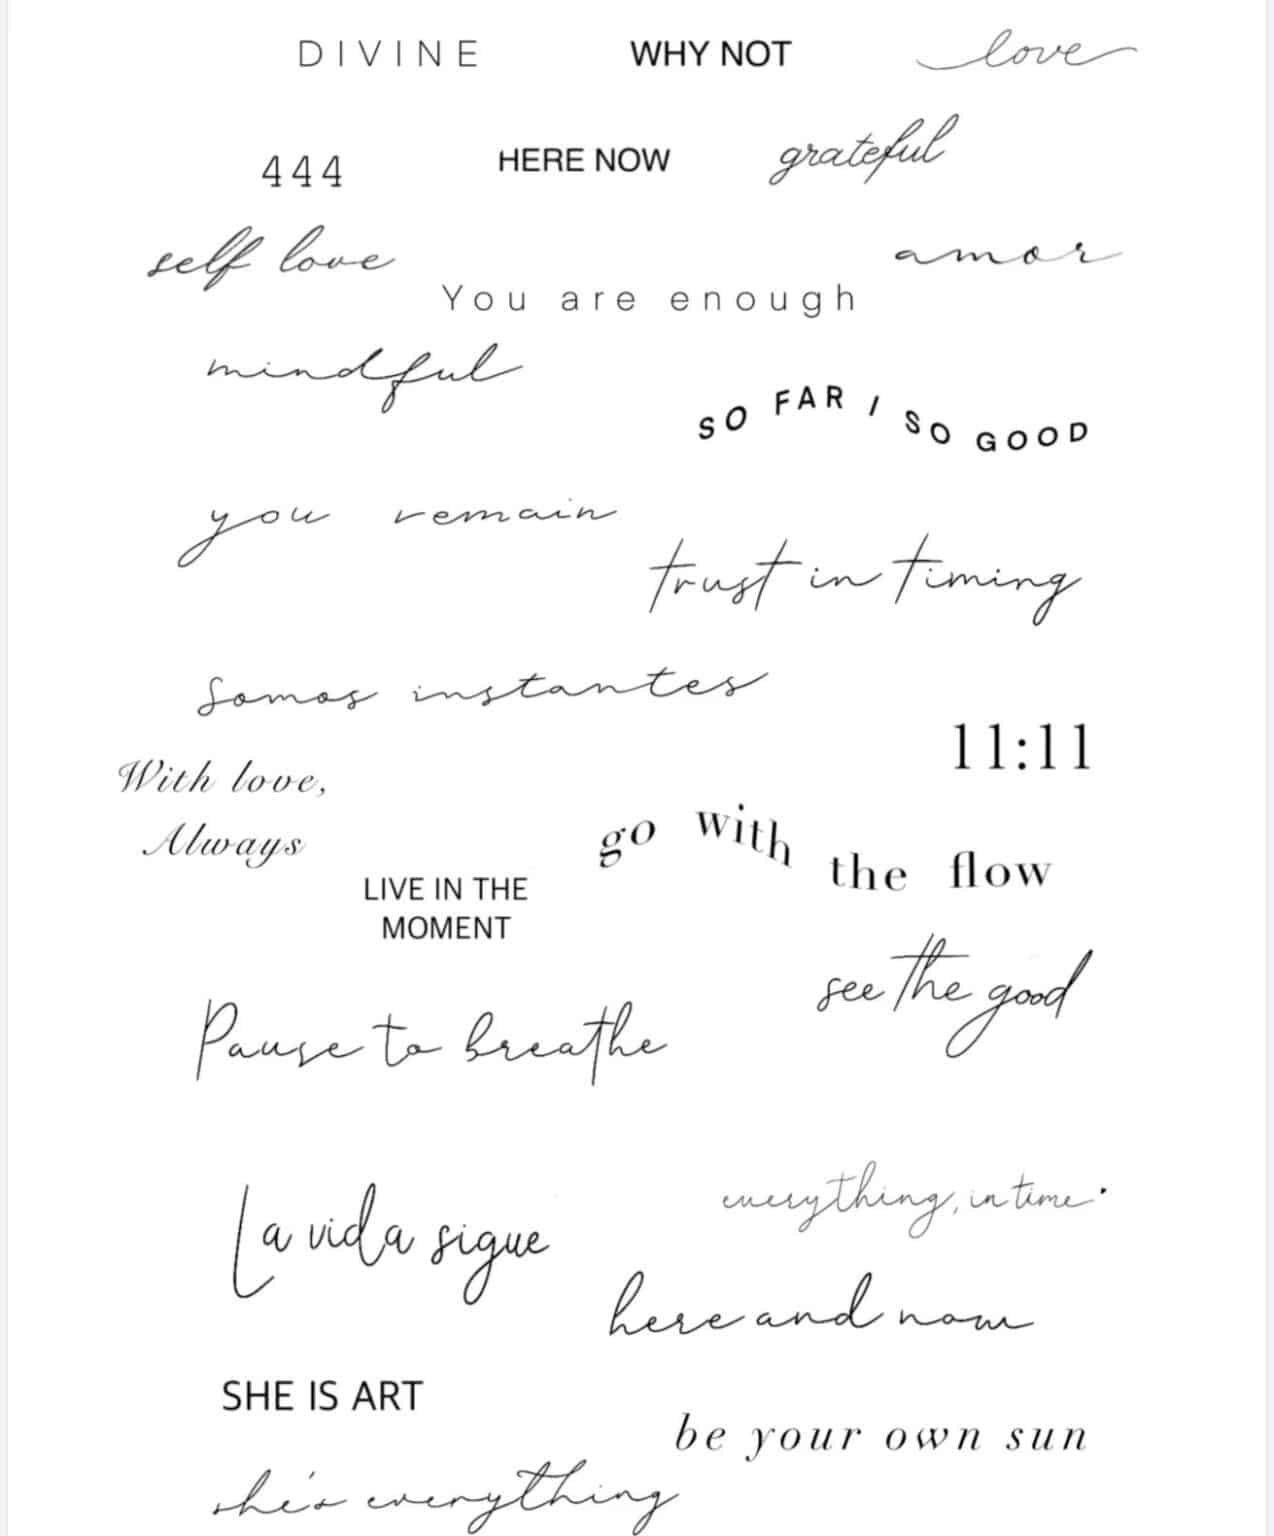 DIVINE
WHY NOT
love
444
HERE NOW
grateful
self love
amor
You are enough
mindful
SO FAR / SO GOOD
you remain
trust in timing
Somos instantes
11:11
With love,
Always
go with the flow
LIVE IN THE
MOMENT
see the good
Pause to breathe
everything, in time.
La vida sigue
here and now
SHE IS ART
be your own sun
she's everything